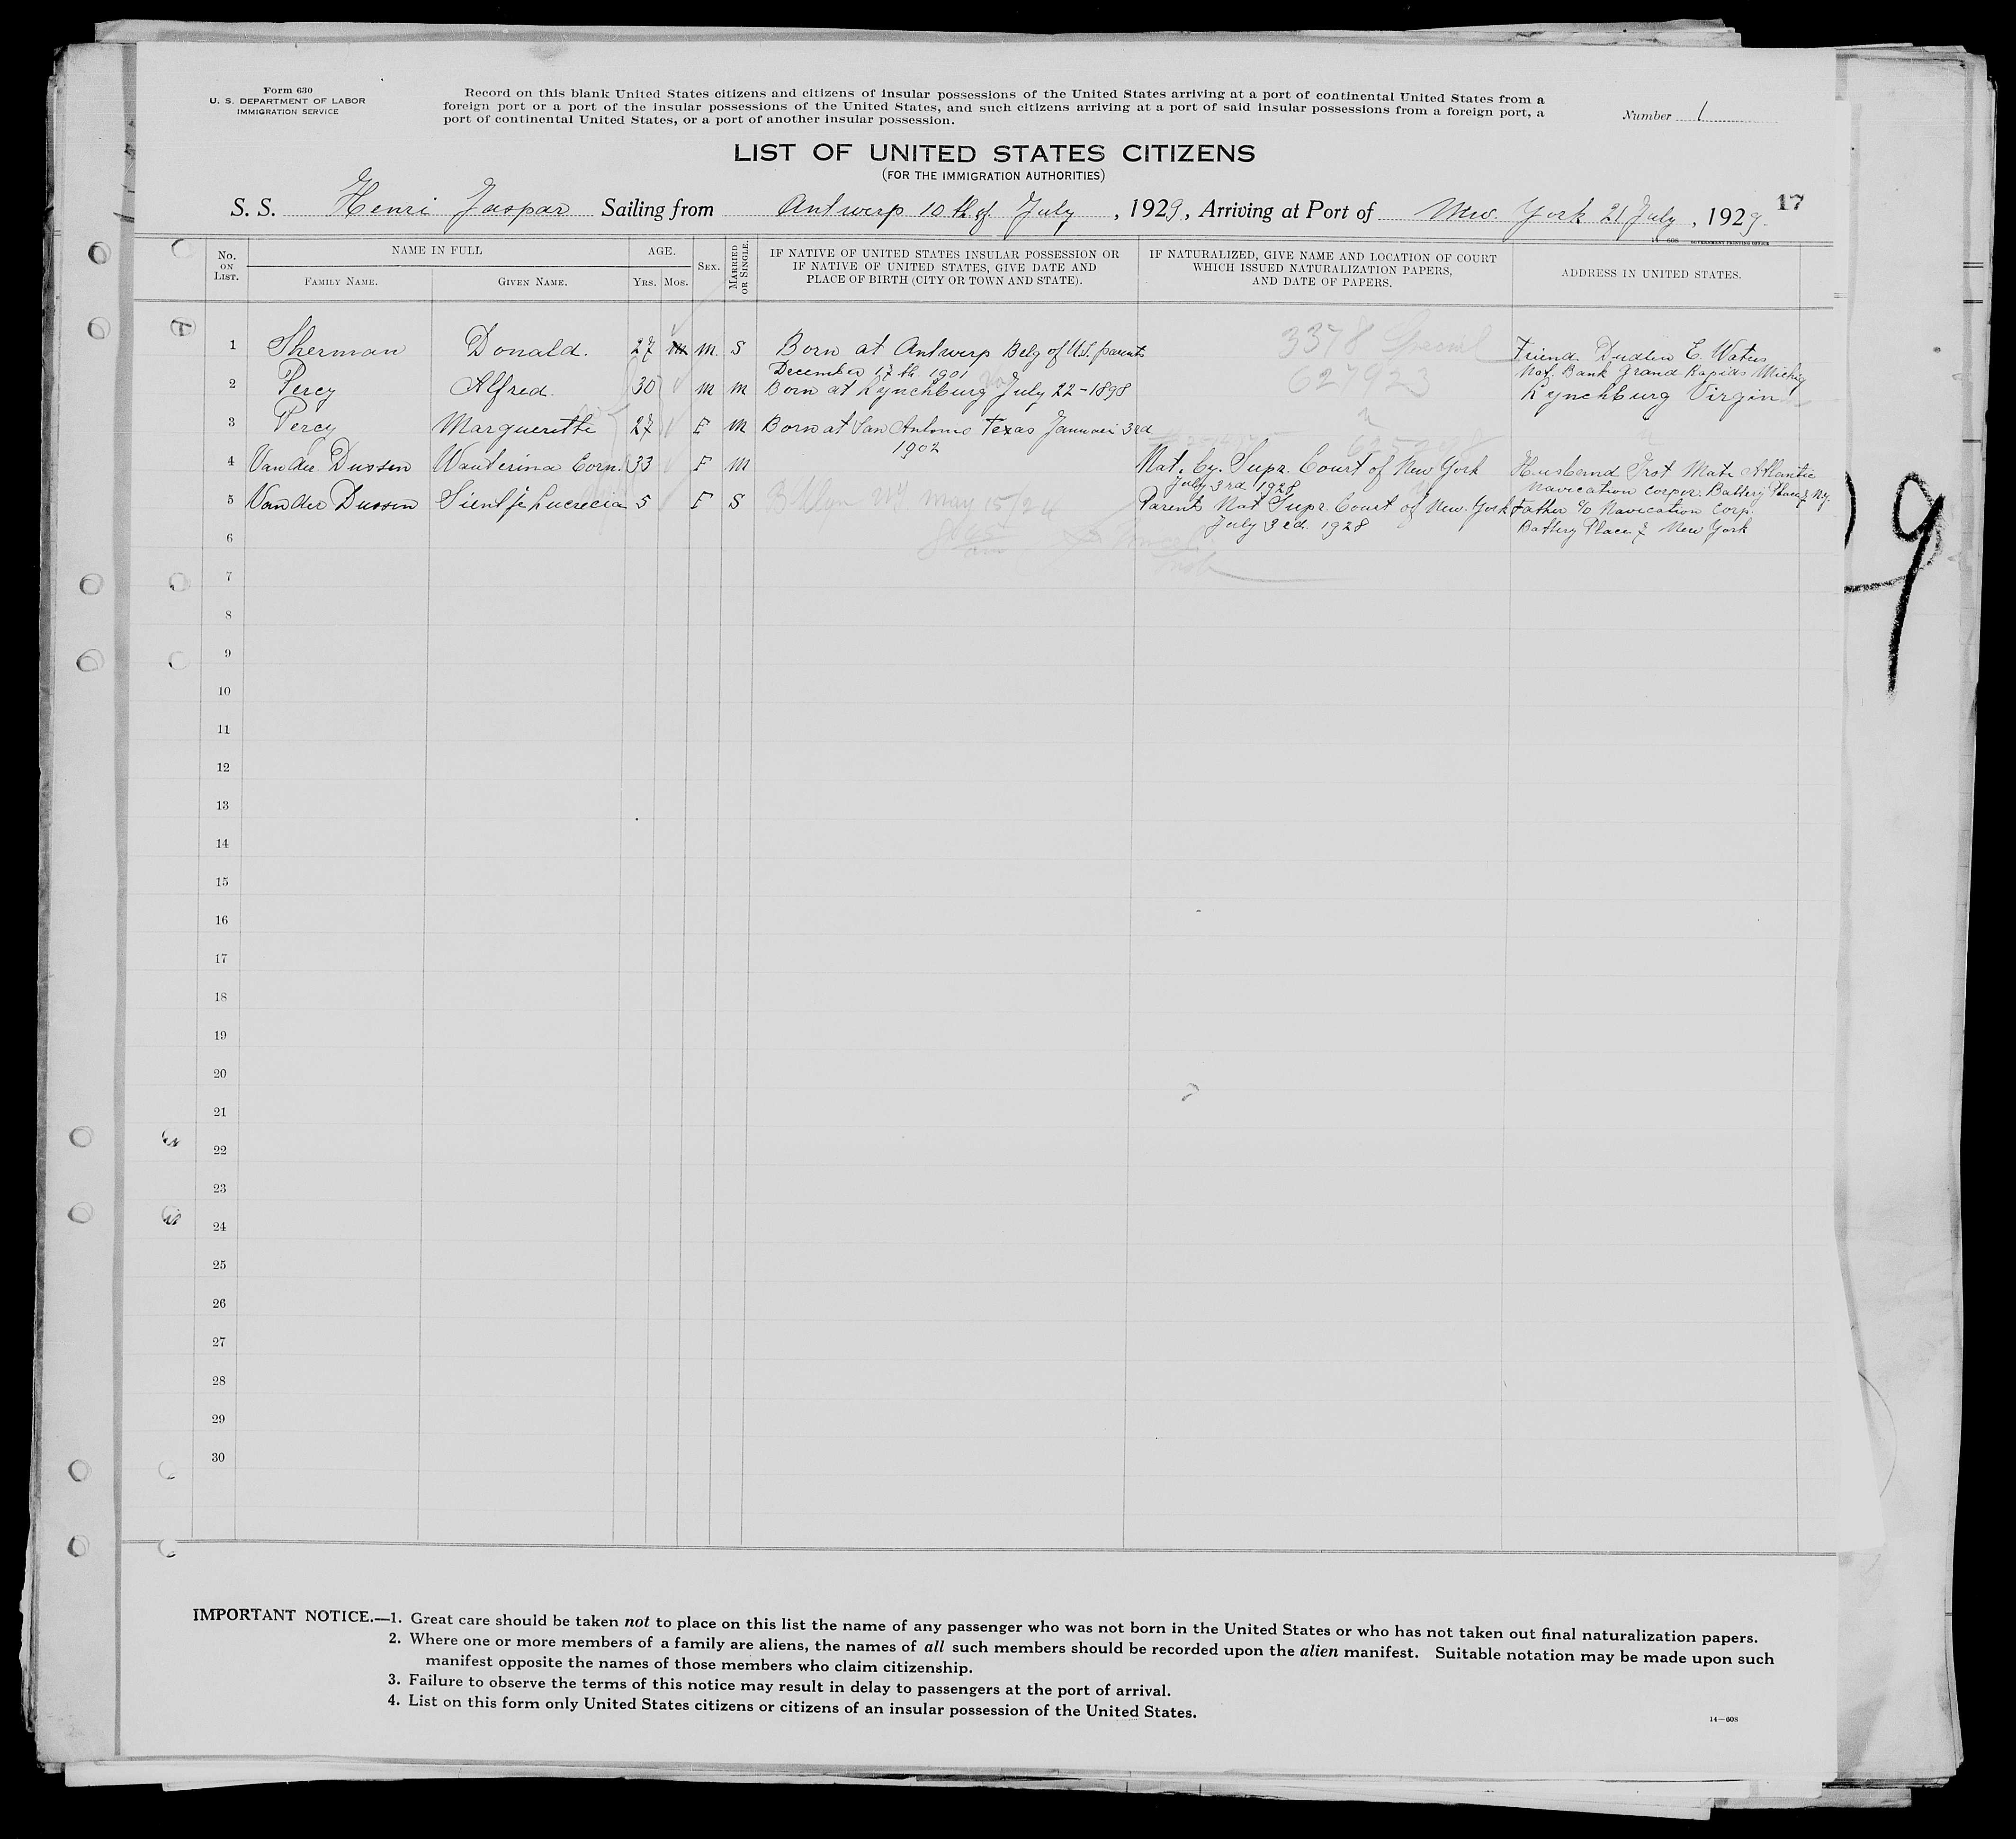 Form 630
U. S. DEPARTMENT OF LABOR
IMMIGRATION SERVICE
Record on this blank United States citizens and citizens of insular possessions of the United States arriving at a port of continental United States from a
foreign port or a port of the insular possessions of the United States, and such citizens arriving at a port of said insular possessions from a foreign port, a
port of continental United States, or a port of another insular possession.
Number 1
LIST OF UNITED STATES CITIZENS
(FOR THE IMMIGRATION AUTHORITIES)
S. S. Henri Jaspar Sailing from Antwerp 10 th of July, 1929, Arriving at Port of New York 21 July, 1929.
17
14—608 GOVERNMENT PRINTING OFFICE
No. ON LIST.
NAME IN FULL
FAMILY NAME.
GIVEN NAME.
AGE.
YRS. MOS.
SEX.
MARRIED OR SINGLE.
IF NATIVE OF UNITED STATES INSULAR POSSESSION OR
IF NATIVE OF UNITED STATES, GIVE DATE AND
PLACE OF BIRTH (CITY OR TOWN AND STATE).
IF NATURALIZED, GIVE NAME AND LOCATION OF COURT
WHICH ISSUED NATURALIZATION PAPERS,
AND DATE OF PAPERS.
ADDRESS IN UNITED STATES.
1 Sherman Donald. 27 M. S Born at Antwerp Belg of U.S. parents 3378 Special Friend Dudlin E. Waters
December 17 th. 1901 Nat. Bank Grand Rapids Michig
2 Percy Alfred. 30 M M Born at Lynchburg Va July 22-1898 627923 Lynchburg Virgin
3 Percy Marguerithe 27 F M Born at San Antonio Texas Januari 3rd
1902
4 Van der Dussen Wanterina Corn. 33 F M Nat. by. Supr. Court of New York Husband Irot Mate Atlantic
July 3rd 1928 Navication Corpor. Battery Place & N.y.
5 Van der Dussen Sientje Lucrecia 5 F S May 15/24 Parents Nat Supr. Court of New-York Father c/o Navication Corp.
July 3 ed. 1928 Battery Place & New York
6
7
8
9
10
11
12
13
14
15
16
17
18
19
20
21
22
23
24
25
26
27
28
29
30
IMPORTANT NOTICE.—1. Great care should be taken not to place on this list the name of any passenger who was not born in the United States or who has not taken out final naturalization papers.
2. Where one or more members of a family are aliens, the names of all such members should be recorded upon the alien manifest. Suitable notation may be made upon such
manifest opposite the names of those members who claim citizenship.
3. Failure to observe the terms of this notice may result in delay to passengers at the port of arrival.
4. List on this form only United States citizens or citizens of an insular possession of the United States.
14—608
9